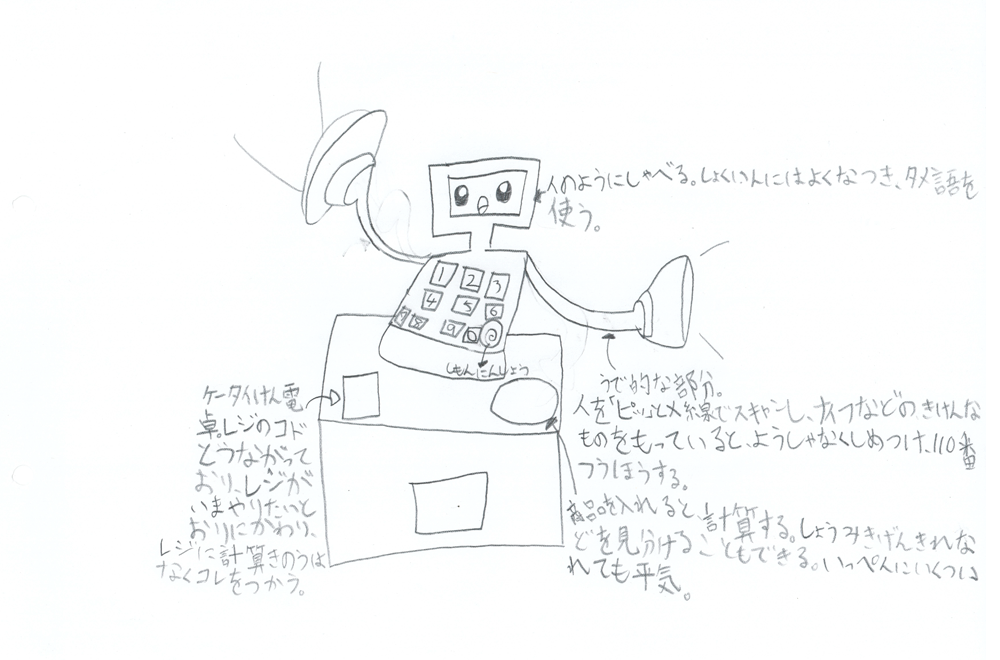 人のようにしゃべる。しょくいんにはよくなつき、タメ語を
使う。
1 2 3
4 5 6
7 8 9 0 @
しもんにんしょう
うで的な部分。
人を「ピッ」とX線でスキャンし、ナイフなどのきけんな
ものをもっていると、ようしゃなくしめつけ、110番
つうほうする。
商品を入れると、計算する。しょうみきげんきれな
どを見分けることもできる。いっぺんにいくつい
れても平気。
ケータイけん電
卓。レジのコド
とつながって
おり、レジが
いまやりたいと
おりにかわり、
レジに計算きのうは
なくコレをつかう。